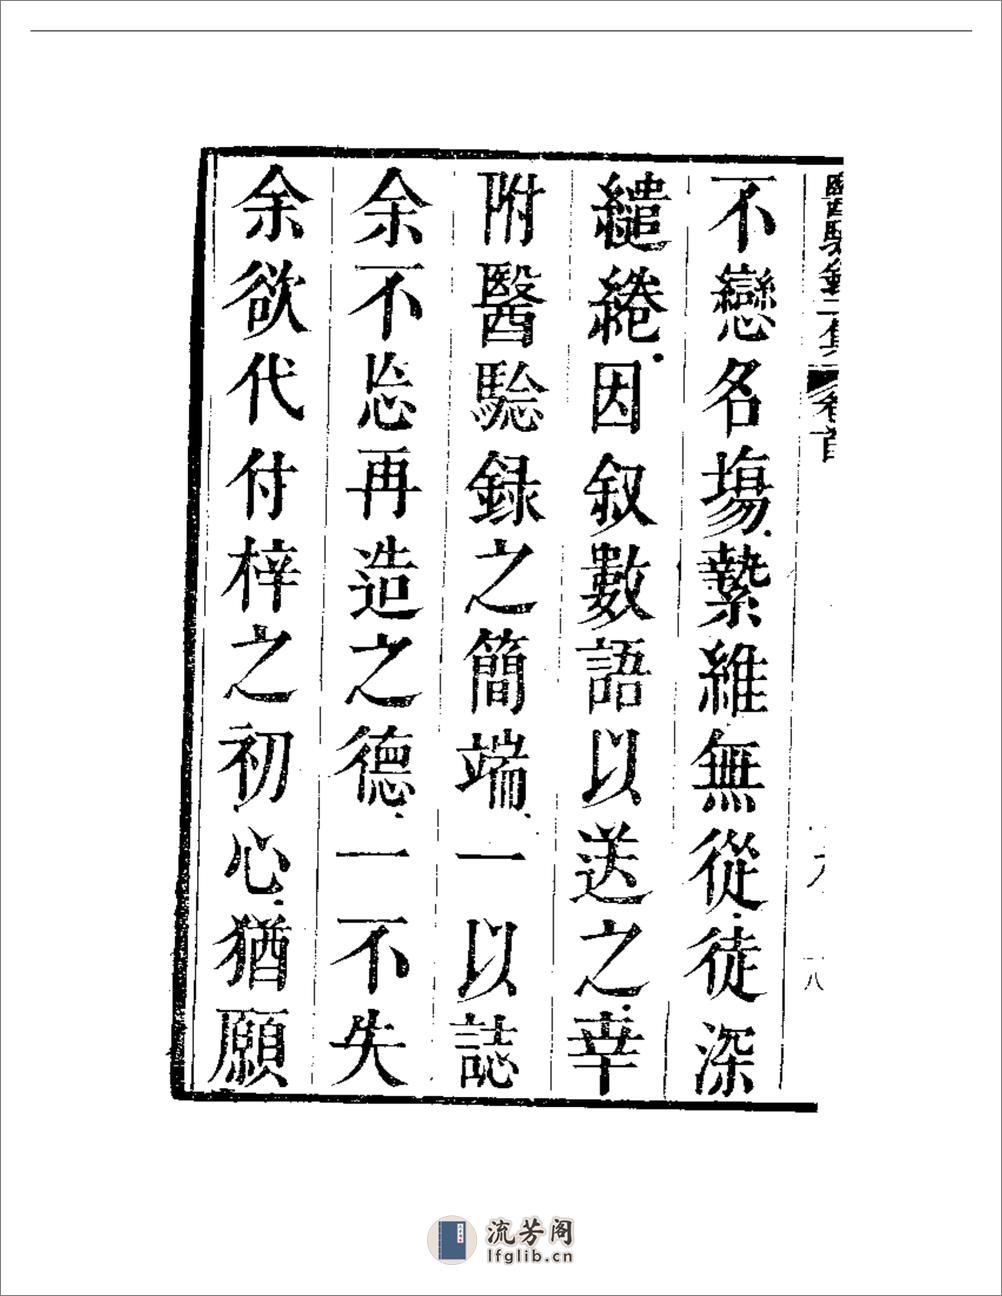 醫驗錄二集 卷首 八
不戀名塲縶維無從徒深
繾綣因叙數語以送之幸
附醫騐録之簡端一以誌
余不忘再造之德一不失
余欲代付梓之初心猶願
流芳阁
lfglib.cn